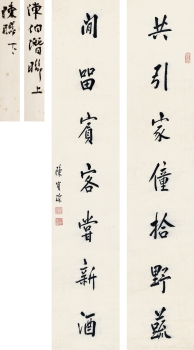 共引家僮拾野蔬
閒留賓客嘗新酒
陳寶琛
陳伯潛聯上